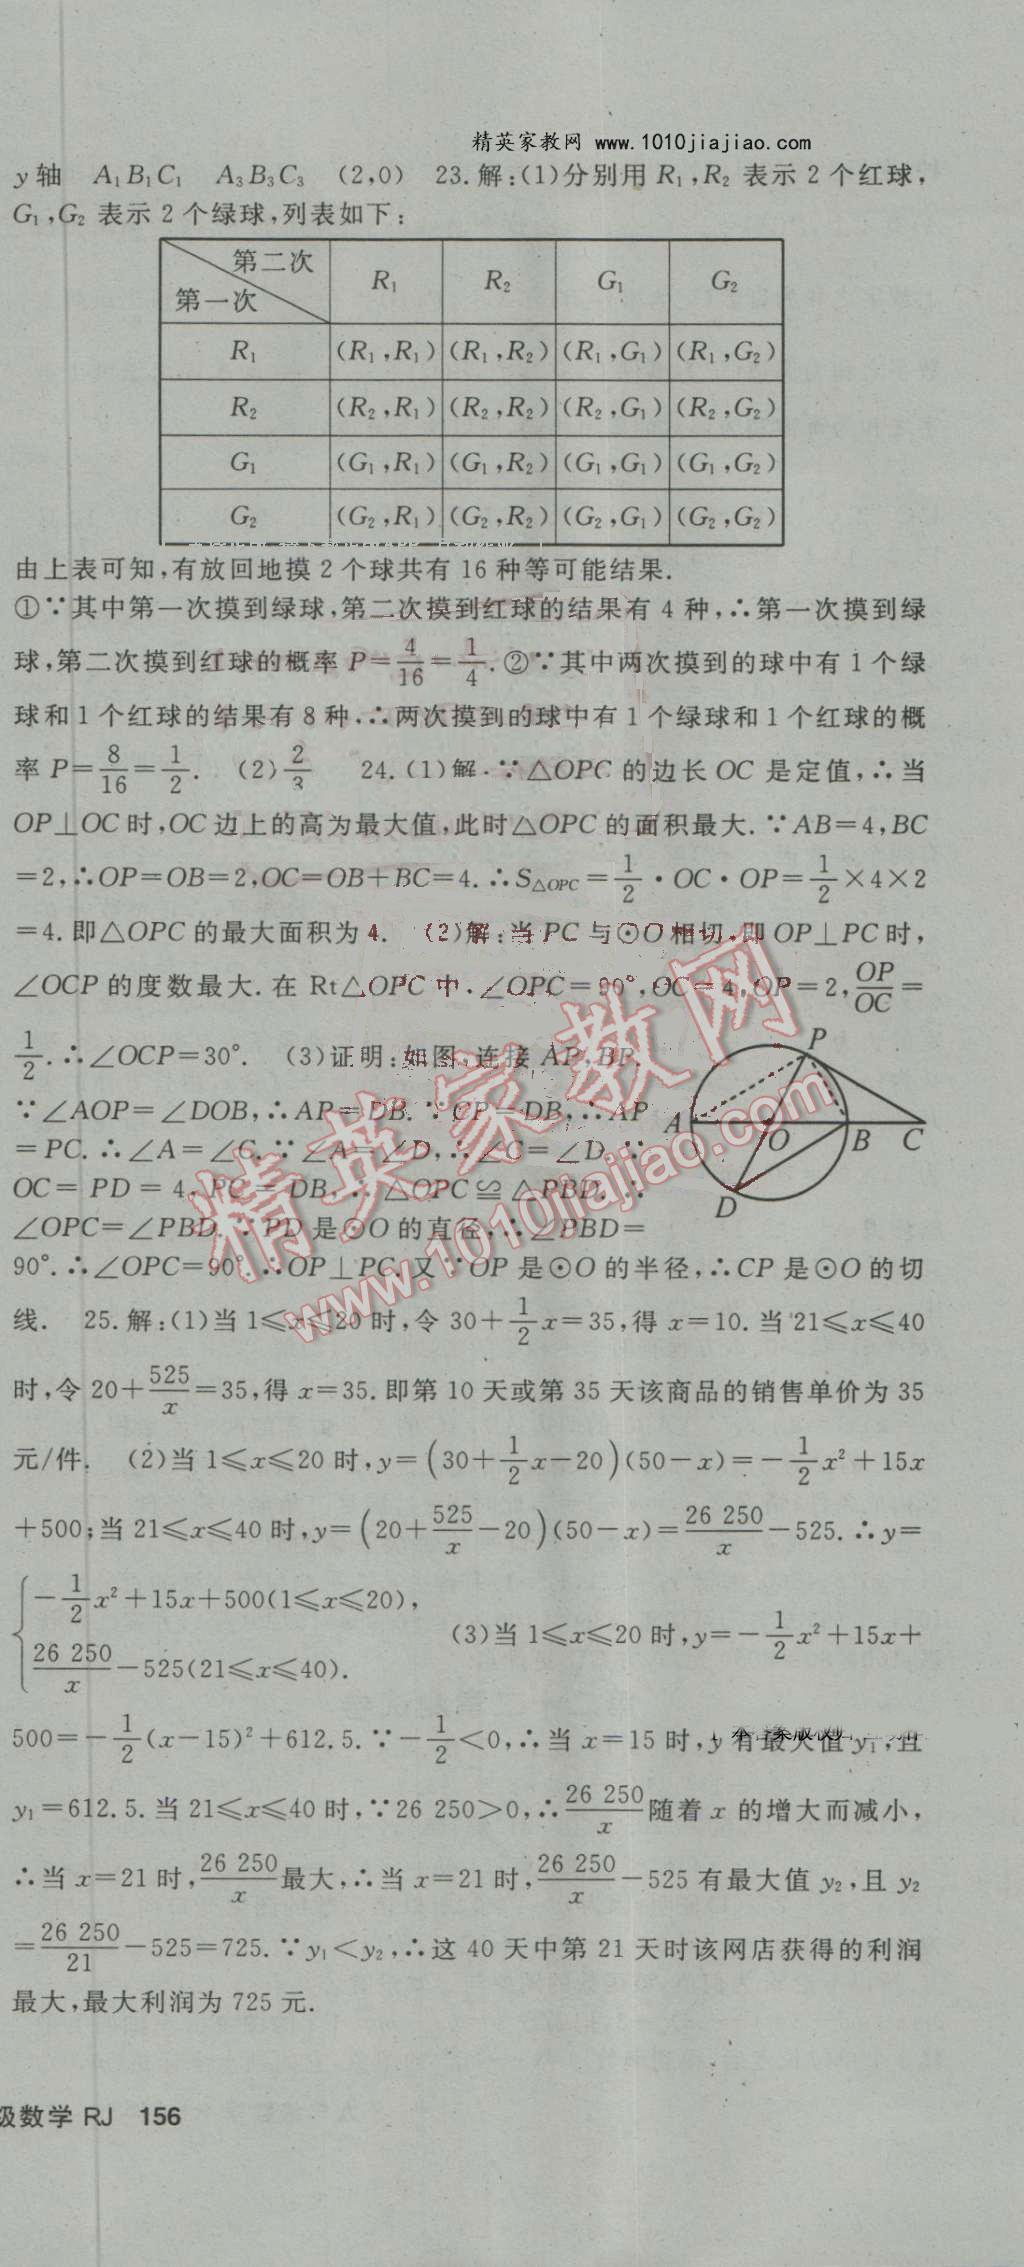 精英家教网 www.1010jiajiao.com
y轴 A₁B₁C₁ A₃B₃C₃ (2,0) 23.解:(1)分别用R₁,R₂表示2个红球,
G₁,G₂表示2个绿球,列表如下:
第二次 R₁ R₂ G₁ G₂
第一次
R₁ (R₁,R₁) (R₁,R₂) (R₁,G₁) (R₁,G₂)
R₂ (R₂,R₁) (R₂,R₂) (R₂,G₁) (R₂,G₂)
G₁ (G₁,R₁) (G₁,R₂) (G₁,G₁) (G₁,G₂)
G₂ (G₂,R₁) (G₂,R₂) (G₂,G₁) (G₂,G₂)
由上表可知,有放回地摸2个球共有16种等可能结果.
①∵其中第一次摸到绿球,第二次摸到红球的结果有4种,∴第一次摸到绿
球,第二次摸到红球的概率P=4/16=1/4.②∵其中两次摸到的球中有1个绿
球和1个红球的结果有8种,∴两次摸到的球中有1个绿球和1个红球的概
率P=8/16=1/2. (2)2/3 24.(1)解:∵△OPC的边长OC是定值,∴当
OP⊥OC时,OC边上的高为最大值,此时△OPC的面积最大.∵AB=4,BC
=2,∴OP=OB=2,OC=OB+BC=4.∴S△OPC=1/2·OC·OP=1/2×4×2
=4.即△OPC的最大面积为4. (2)解:当PC与⊙O相切,即OP⊥PC时,
∠OCP的度数最大.在Rt△OPC中,∠OPC=90°,OC=4,OP=2,OP/OC=
1/2.∴∠OCP=30°. (3)证明:如图,连接AP,BP.
∵∠AOP=∠DOB,∴AP=DB.∵CP=DB,∴AP
=PC.∴∠A=∠C.∵∠A=∠D,∴∠C=∠D.∵
OC=PD=4,PC=DB,∴△OPC≌△PBD.∴
∠OPC=∠PBD.∵PD是⊙O的直径,∴∠PBD=
90°.∴∠OPC=90°.∴OP⊥PC.又∵OP是⊙O的半径,∴CP是⊙O的切
P
A
O
B
C
D
线. 25.解:(1)当1≤x≤20时,令30+1/2x=35,得x=10.当21≤x≤40
时,令20+525/x=35,得x=35.即第10天或第35天该商品的销售单价为35
元/件. (2)当1≤x≤20时,y=(30+1/2x-20)(50-x)=-1/2x²+15x
+500;当21≤x≤40时,y=(20+525/x-20)(50-x)=26 250/x-525.∴y=
{-1/2x²+15x+500(1≤x≤20),
26 250/x-525(21≤x≤40). (3)当1≤x≤20时,y=-1/2x²+15x+
500=-1/2(x-15)²+612.5.∵-1/2<0,∴当x=15时,y有最大值y₁,且
y₁=612.5.当21≤x≤40时,∵26 250>0,∴26 250/x随着x的增大而减小,
∴当x=21时,26 250/x最大,∴当x=21时,26 250/x-525有最大值y₂,且y₂
=26 250/21-525=725.∵y₁<y₂,∴这40天中第21天时该网店获得的利润
最大,最大利润为725元.
级数学RJ 156
精英家教网
www.1010jiajiao.com